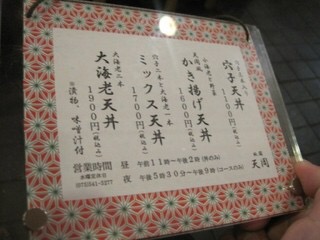 穴子天丼
1100円(税込み)
かき揚げ天丼
1600円(税込み)
大海老一本
ミックス天丼
1700円(税込み)
大海老二本
大海老天丼
1900円(税込み)
※漬物、味噌汁付
営業時間
水曜定休日
昼 午前11時~午後2時
夜 午後5時30分~午後9時(コースのみ)
天周